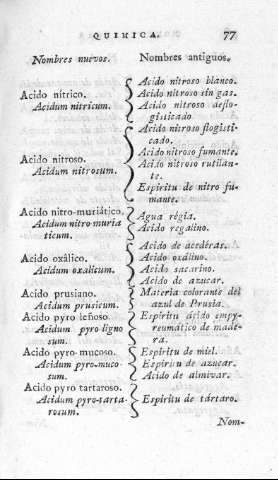 QUIMICA. 77
Nombres nuevos. Nombres antiguos.
Acido nítrico.
Acidum nitricum.
Acido nitroso blanco.
Acido nitroso sin gas.
Acido nitroso deflo-
gisticado
Acido nitroso.
Acidum nitrosum.
Acido nitroso flogisti-
cado.
Acido nitroso fumante.
Acido nitroso rutilan-
te.
Espiritu de nitro fu-
mante.
Acido nitro-muriático.
Acidum nitro-muria
ticum.
Agua régia.
Acido regalino.
Acido oxâlico.
Acidum oxalicum.
Acido de acedéras.
Acido oxâlino.
Acido sacarino.
Acido de azucar.
Acido prusiano.
Acidum prusicum.
Materia colorante del
azul de Prusia.
Acido pyro leñoso
Acidum pyro-ligno
sum.
Espiritu ácido empy-
reumático de made-
ra.
Acido pyro-mucoso.
Acidum pyro-muco-
sum.
Espiritu de miel.
Espiritu de azucar.
Acido de almivar.
Acido pyro tartaroso.
Acidum pyro-tarta-
rosum.
Espiritu de tártaro.
Nom-